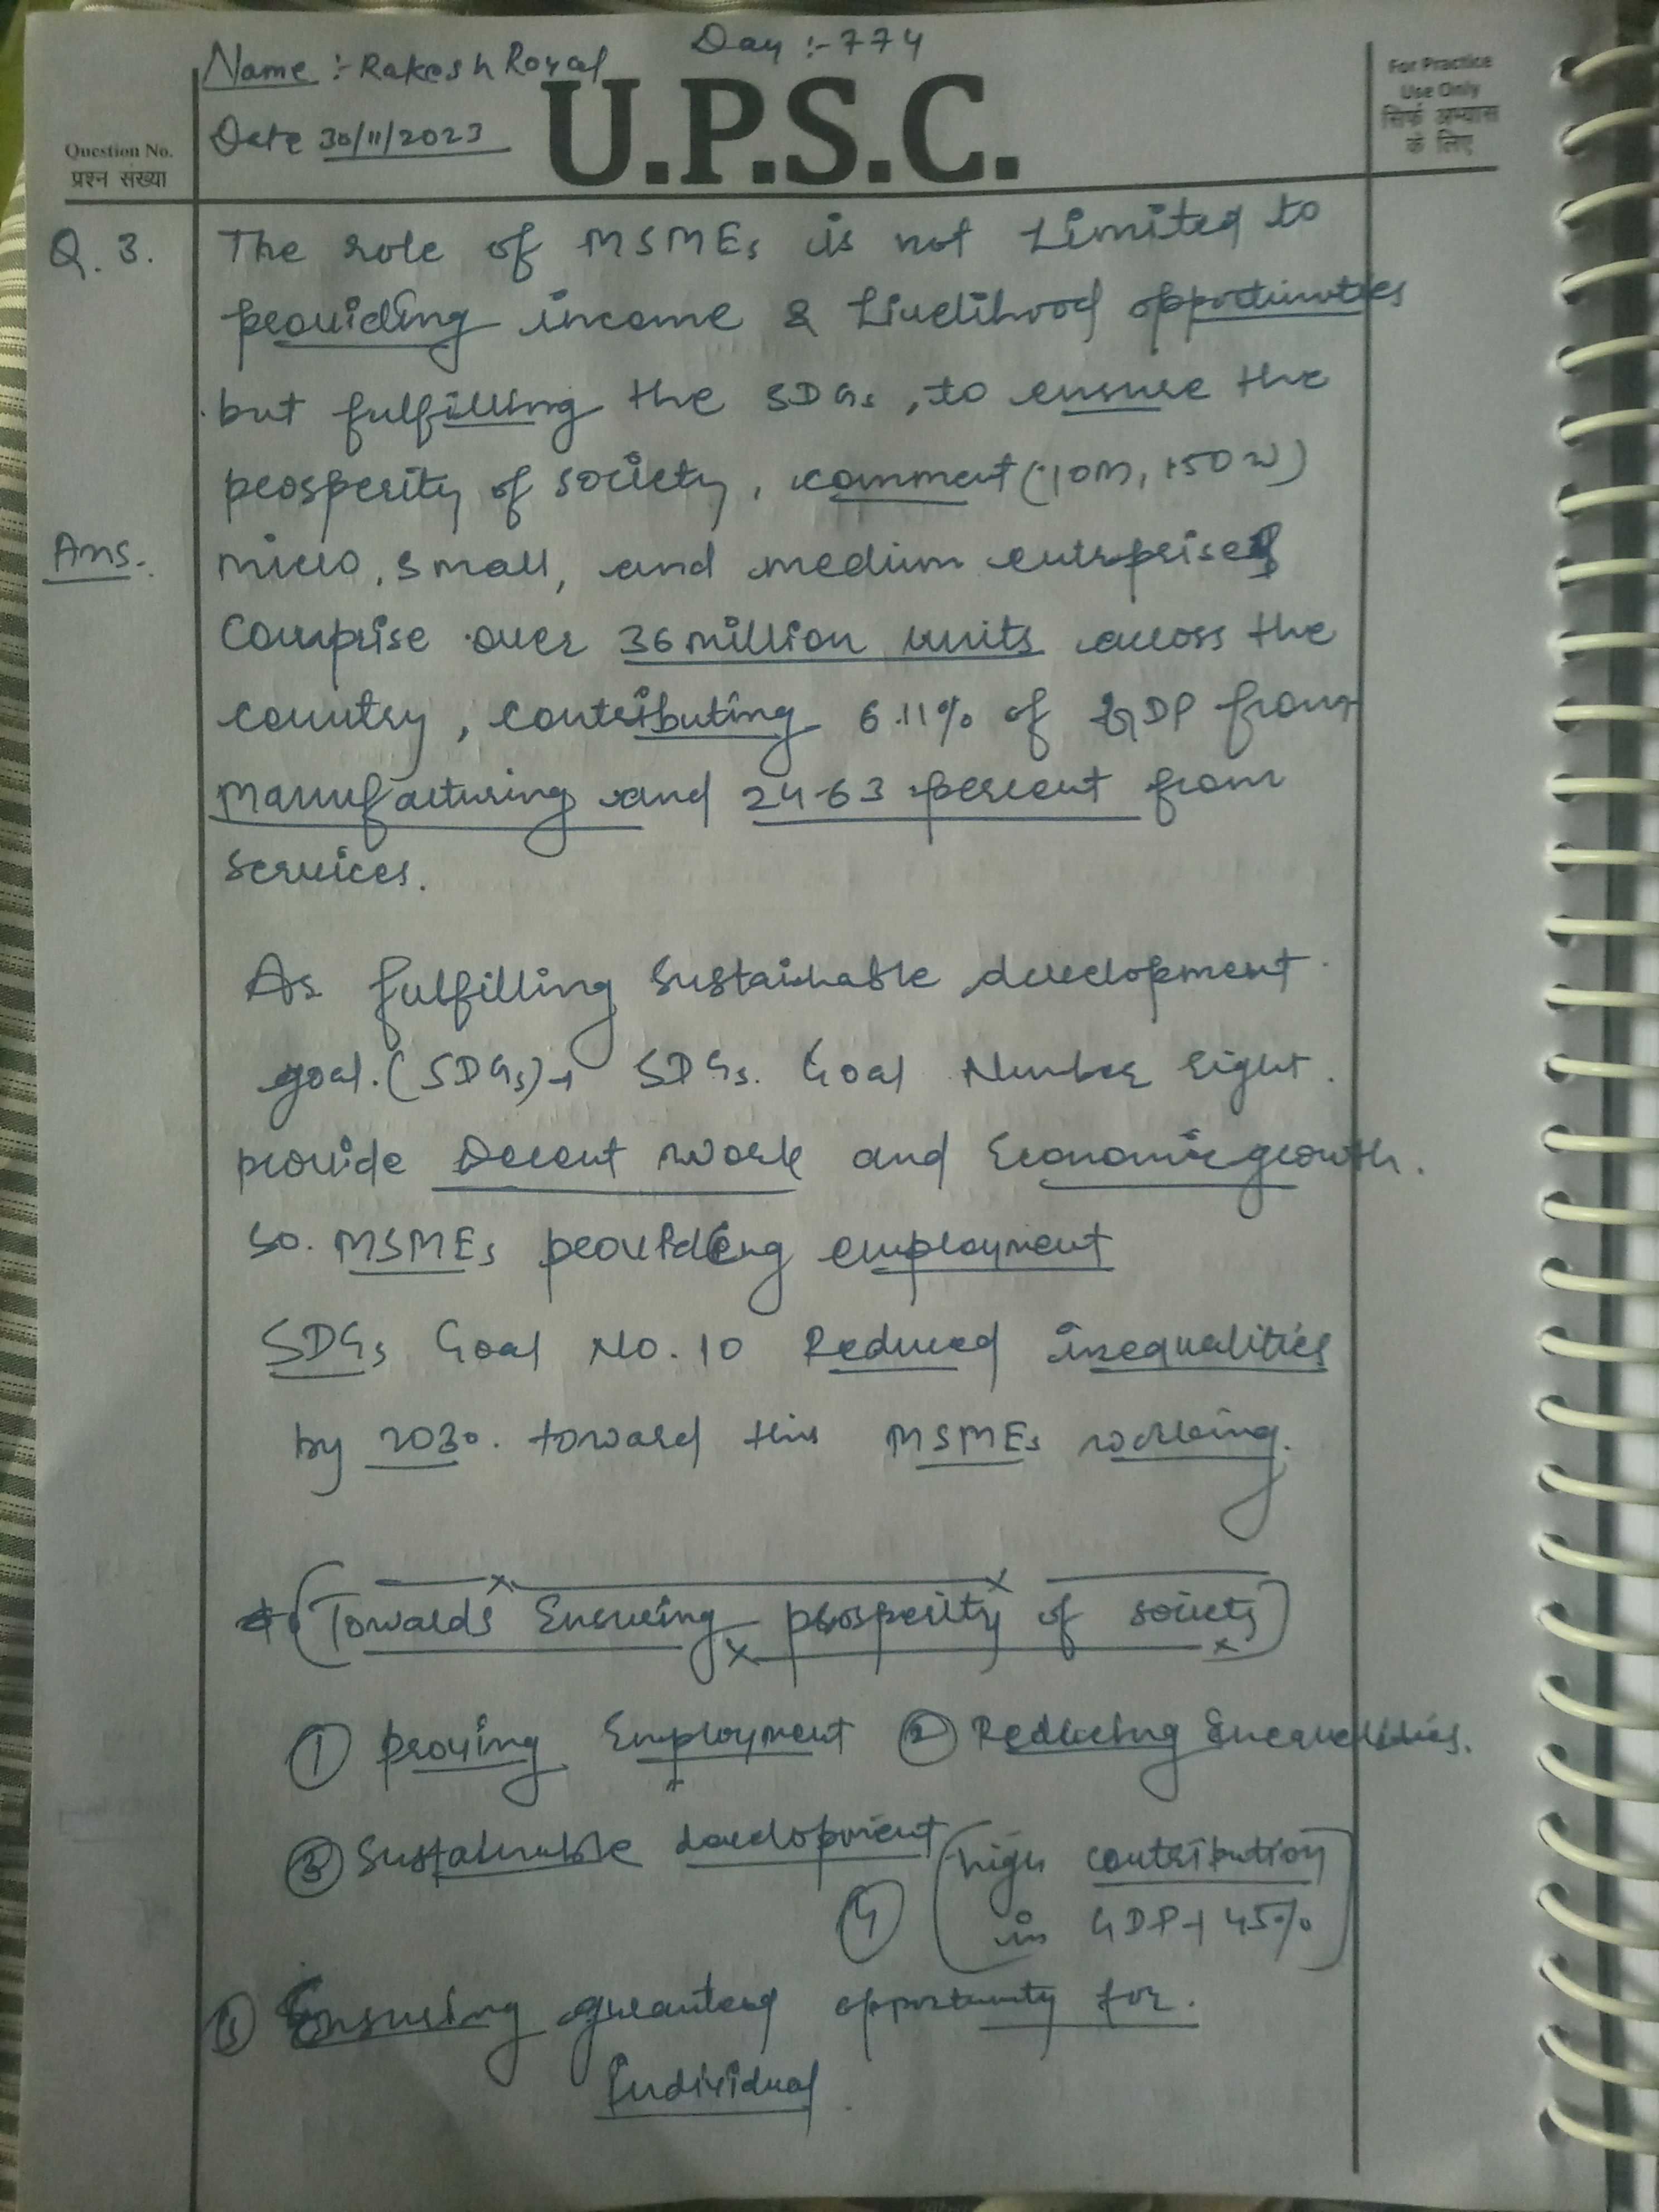 Name :- Rakesh Royal Day :- 774
Date 30/11/2023
U.P.S.C.
For Practice
Use Only
सिर्फ अभ्यास
के लिए
Question No.
प्रश्न संख्या
Q. 3. The role of MSMEs is not Limited to
providing income & Livelihood opportunities
but fulfilling the SDGs, to ensure the
prosperity of society, comment (10M, 150W)
Ans. micro, small, and medium enterprises
comprise over 36 million units across the
country, contributing 6.11% of GDP from
Manufacturing and 24.63 percent from
services.
As fulfilling sustainable development
goal. (SDGs) → SDGs. Goal Number Eight.
provide Decent work and Economic growth.
So. MSMEs providing employment
SDGs Goal No. 10 Reduced inequalities
by 2030. toward this MSMEs working.
Towards Ensuring prosperity of society
① proving Employment ② Reducing Inequalities.
③ Sustainable development
④ high contribution
in GDP → 45%
⑤ Ensuring guranteed opportunity for.
Individual.